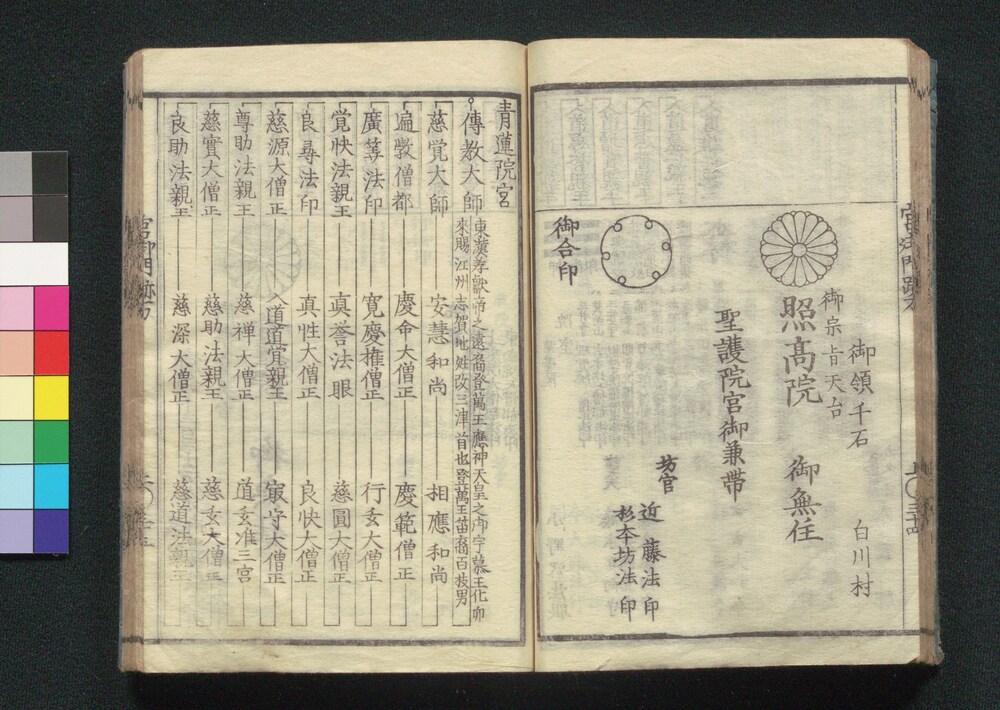 御領千石 白川村
御宗旨天台
照高院 御無住
聖護院宮御兼帯
坊官
近藤法印
杉本坊法印
御合印
青蓮院宮
傳教大師
東漢孝獻帝之遠裔登萬王應神天皇之御宇慕王化
來賜江州志賀地姓改三津首也登萬王苗裔百枝男
慈覺大師 安慧和尚 相應和尚
遍斅僧都 慶命大僧正 慶範僧正
廣筭法印 寛慶権僧正 行玄大僧正
覺快法親王 真誉法眼 慈圓大僧正
良尋法印 真性大僧正 良快大僧正
慈源大僧正 入道道覚親王 冣守大僧正
尊助法親王 慈禅大僧正 道玄准三宮
慈實大僧正 慈助法親王 慈玄大僧正
良助法親王 慈深大僧正 慈道法親王
宮御門跡方